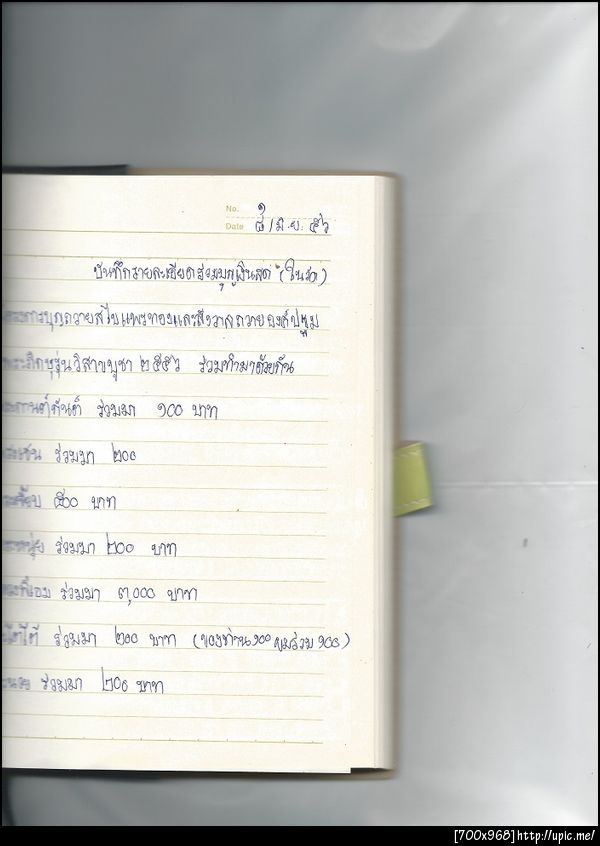 No.
Date ๘ / มิ.ย. ๕๖
บันทึกรายละเอียดร่วมบุญเงินสด (ในวัด)
โครงการบุญถวายสไบแพรทองและสังวาลถวายองค์ปฐม
พระภิกษุรุ่นวิสาขบูชา ๒๕๕๖ ร่วมทำมาด้วยกัน
กานต์กันต์ ร่วมมา ๑๐๐ บาท
ร่วมมา ๒๐๐
๕๐๐ บาท
ร่วมมา ๒๐๐ บาท
ร่วมมา ๓,๐๐๐ บาท
โตโต้ ร่วมมา ๒๐๐ บาท (ของท่าน ๑๐๐ ผมร่วม ๑๐๐)
ร่วมมา ๒๐๐ บาท
[700x968]http://upic.me/